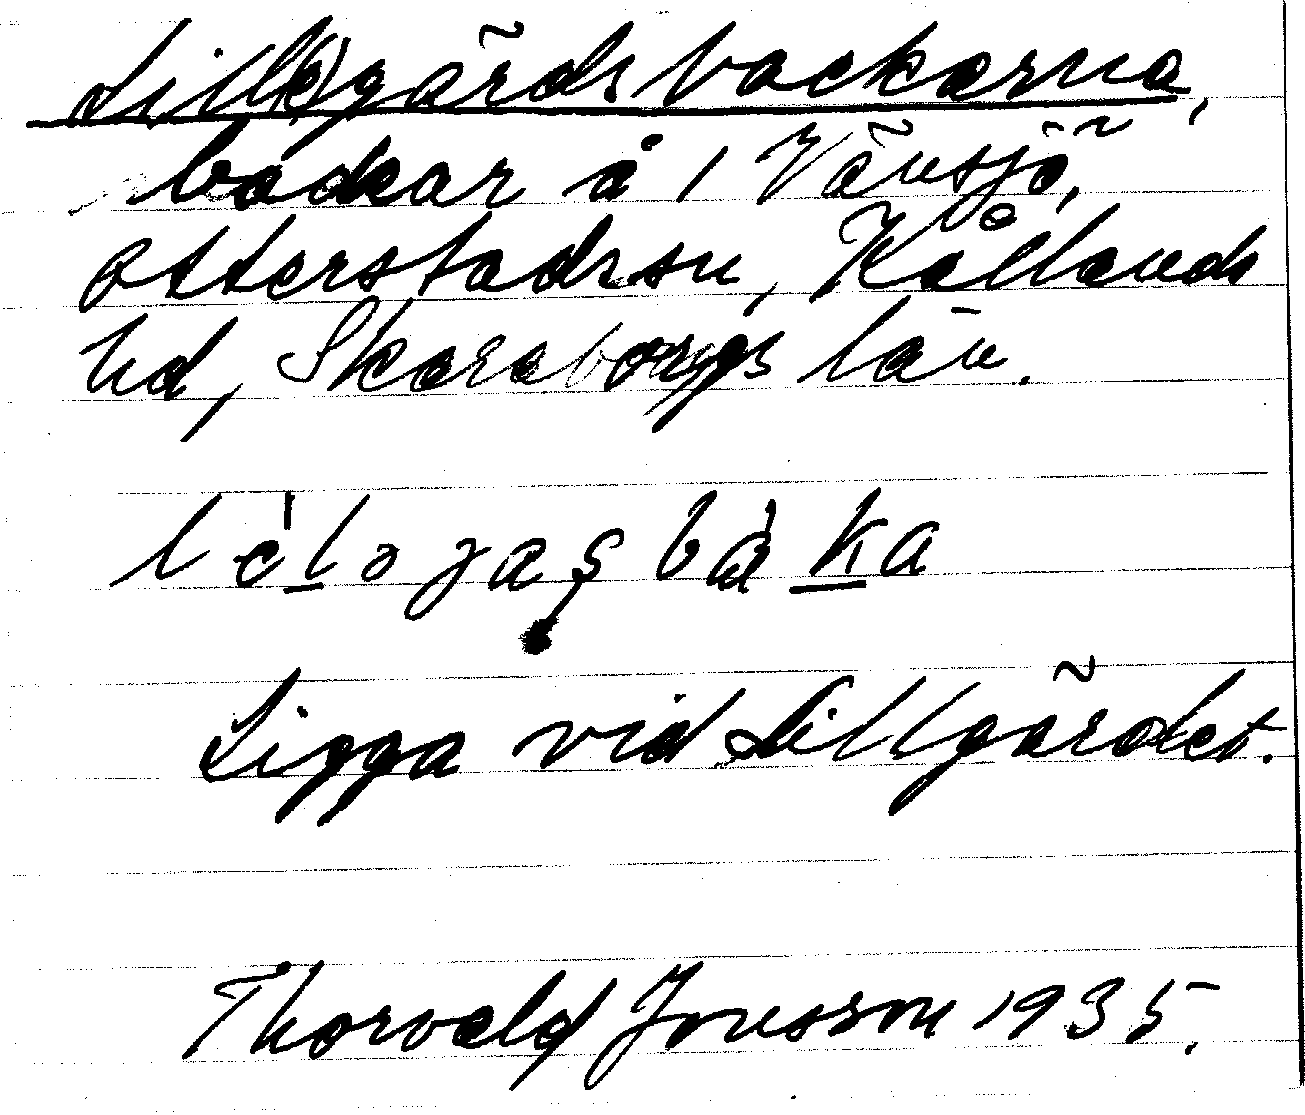 Lill(e)gärdsbackarna,
backar å 1 Vänsjö,
Otterstadssn, Kållands
hd, Skaraborgs län.
Ligga vid Lillgärdet.
Thorvald Jonsson 1935.